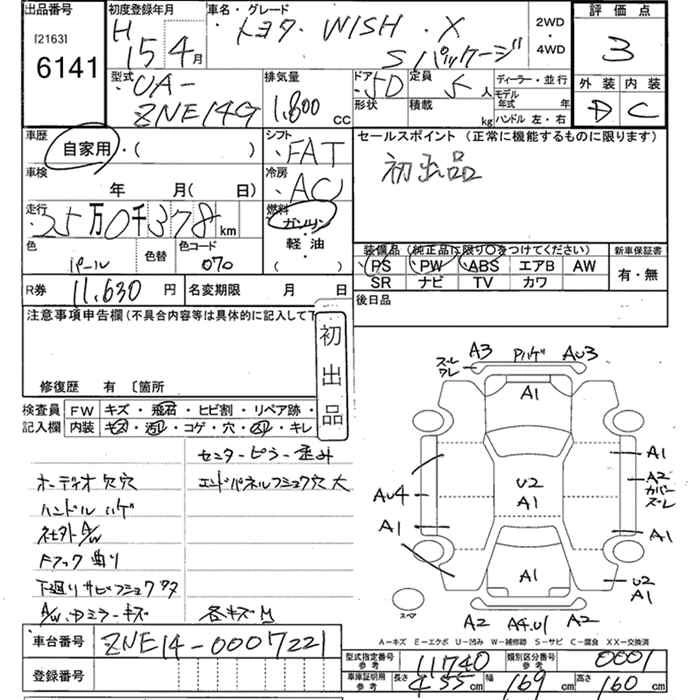 出品番号
[2163]
6141
初度登録年月
H 15年 4月
車名・グレード
トヨタ WISH X
Sパッケージ
2WD
・
4WD
評価点
3
外装 内装
D C
型式
UA-
ZNE14G
排気量
1,800 cc
ドア 5D
形状
定員 5人
積載 kg
ディーラー・並行
モデル年式 年
ハンドル 左・右
車歴
自家用・( )
車検
年 月( 日)
走行
35万0千378km
色
パール
色替
色コード
070
シフト
FAT
冷房
AC
燃料
ガソリン
軽油
( )
セールスポイント(正常に機能するものに限ります)
初出品
装備品(純正品に限り○をつけてください)
PS PW ABS エアB AW
SR ナビ TV カワ
新車保証書
有・無
R券 11,630円
名変期限 月 日
後日品
注意事項申告欄(不具合内容等は具体的に記入して下
修復歴 有 〔箇所
初出品
検査員
記入欄
FW キズ・飛石・ヒビ割・リペア跡・
内装 キズ・汚・コゲ・穴・・キレ
センターピラー歪み
オーディオ欠穴
エンドパネルフショク穴大
ハンドルハゲ
社外A/W
Fフック曲り
下廻りサビフショク
A/W・Dミラーキズ
各キズ
車台番号 ZNE14-0007221
登録番号
A3 Pハゲ AU3
ズレ
ワレ
A1
U2
A1
AU4
A1
A1
A2
カバー
ズレ
A1
A1
U2
A1
スペア
A2 A4.U1 A2
A-キズ E-エクボ U-凹み W-補修跡 S-サビ C-腐食 XX-交換済
型式指定番号 参考 11740
類別区分番号 参考 0001
車庫証明用 参考 長さ 455cm 幅 169cm 高さ 160cm